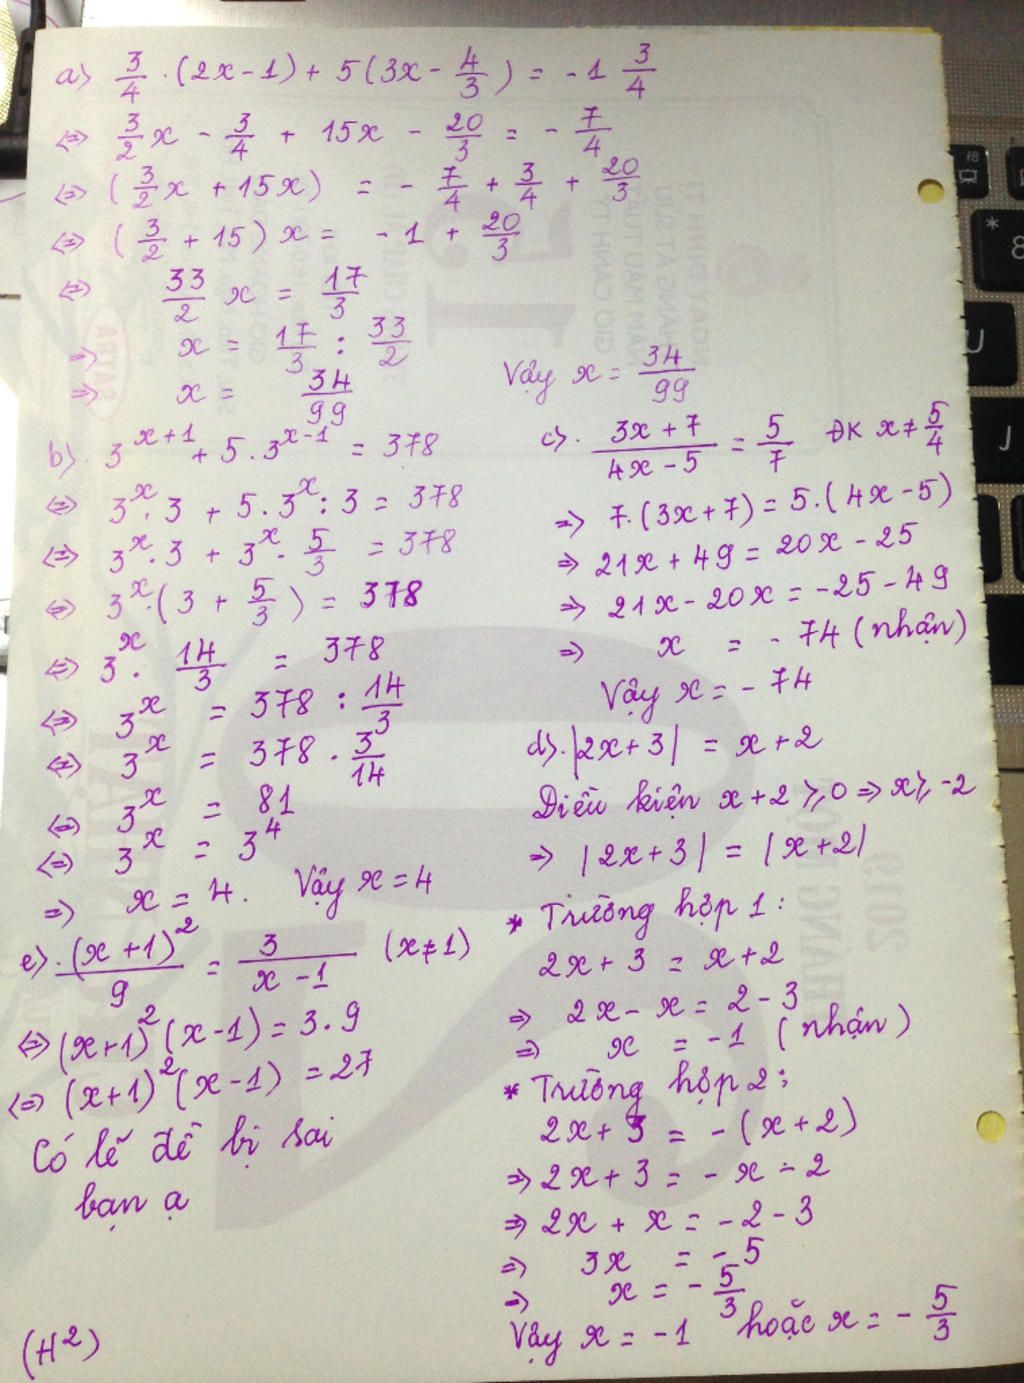 a) 3/4 . (2x - 1) + 5(3x - 4/3) = -1 3/4
⇔ 3/2 x - 3/4 + 15x - 20/3 = - 7/4
⇔ (3/2 x + 15x) = - 7/4 + 3/4 + 20/3
⇔ (3/2 + 15) x = -1 + 20/3
⇔ 33/2 x = 17/3
⇒ x = 17/3 : 33/2
⇒ x = 34/99
Vậy x = 34/99
b). 3^(x+1) + 5 . 3^(x-1) = 378
⇔ 3^x . 3 + 5 . 3^x : 3 = 378
⇔ 3^x . 3 + 3^x . 5/3 = 378
⇔ 3^x . (3 + 5/3) = 378
⇔ 3^x . 14/3 = 378
⇔ 3^x = 378 : 14/3
⇔ 3^x = 378 . 3/14
⇔ 3^x = 81
⇔ 3^x = 3^4
⇒ x = 4. Vậy x = 4
e). (x+1)^2/9 = 3/(x-1) (x ≠ 1)
⇔ (x+1)^2 (x-1) = 3.9
⇔ (x+1)^2 (x-1) = 27
Có lẽ đề bị sai
bạn ạ
(H²)
c). (3x+7)/(4x-5) = 5/7 ĐK x ≠ 5/4
⇒ 7.(3x+7) = 5.(4x-5)
⇒ 21x + 49 = 20x - 25
⇒ 21x - 20x = -25 - 49
⇒ x = -74 (nhận)
Vậy x = -74
d). |2x+3| = x+2
Điều kiện x+2 ⩾ 0 ⇒ x ⩾ -2
⇒ |2x+3| = |x+2|
* Trường hợp 1:
2x+3 = x+2
⇒ 2x - x = 2 - 3
⇒ x = -1 (nhận)
* Trường hợp 2:
2x+3 = -(x+2)
⇒ 2x+3 = -x - 2
⇒ 2x + x = -2 - 3
⇒ 3x = -5
⇒ x = - 5/3
Vậy x = -1 hoặc x = - 5/3